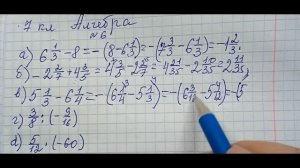 7 кл Алгебра
№6
а) 6 1/3 - 8 = -(8 - 6 1/3) = -(7 3/3 - 6 1/3) = -1 2/3
б) - 2 2/7 + 4 3/5 = 4 3/5 - 2 2/7 = 4 21/35 - 2 10/35 = 2 11/35
в) 5 1/3 - 6 1/4 = -(6 1/4 - 5 1/3) = -(6 3/12 - 5 4/12) = -(5
г) 3/8 : (- 9/16)
д) 5/12 · (-60)